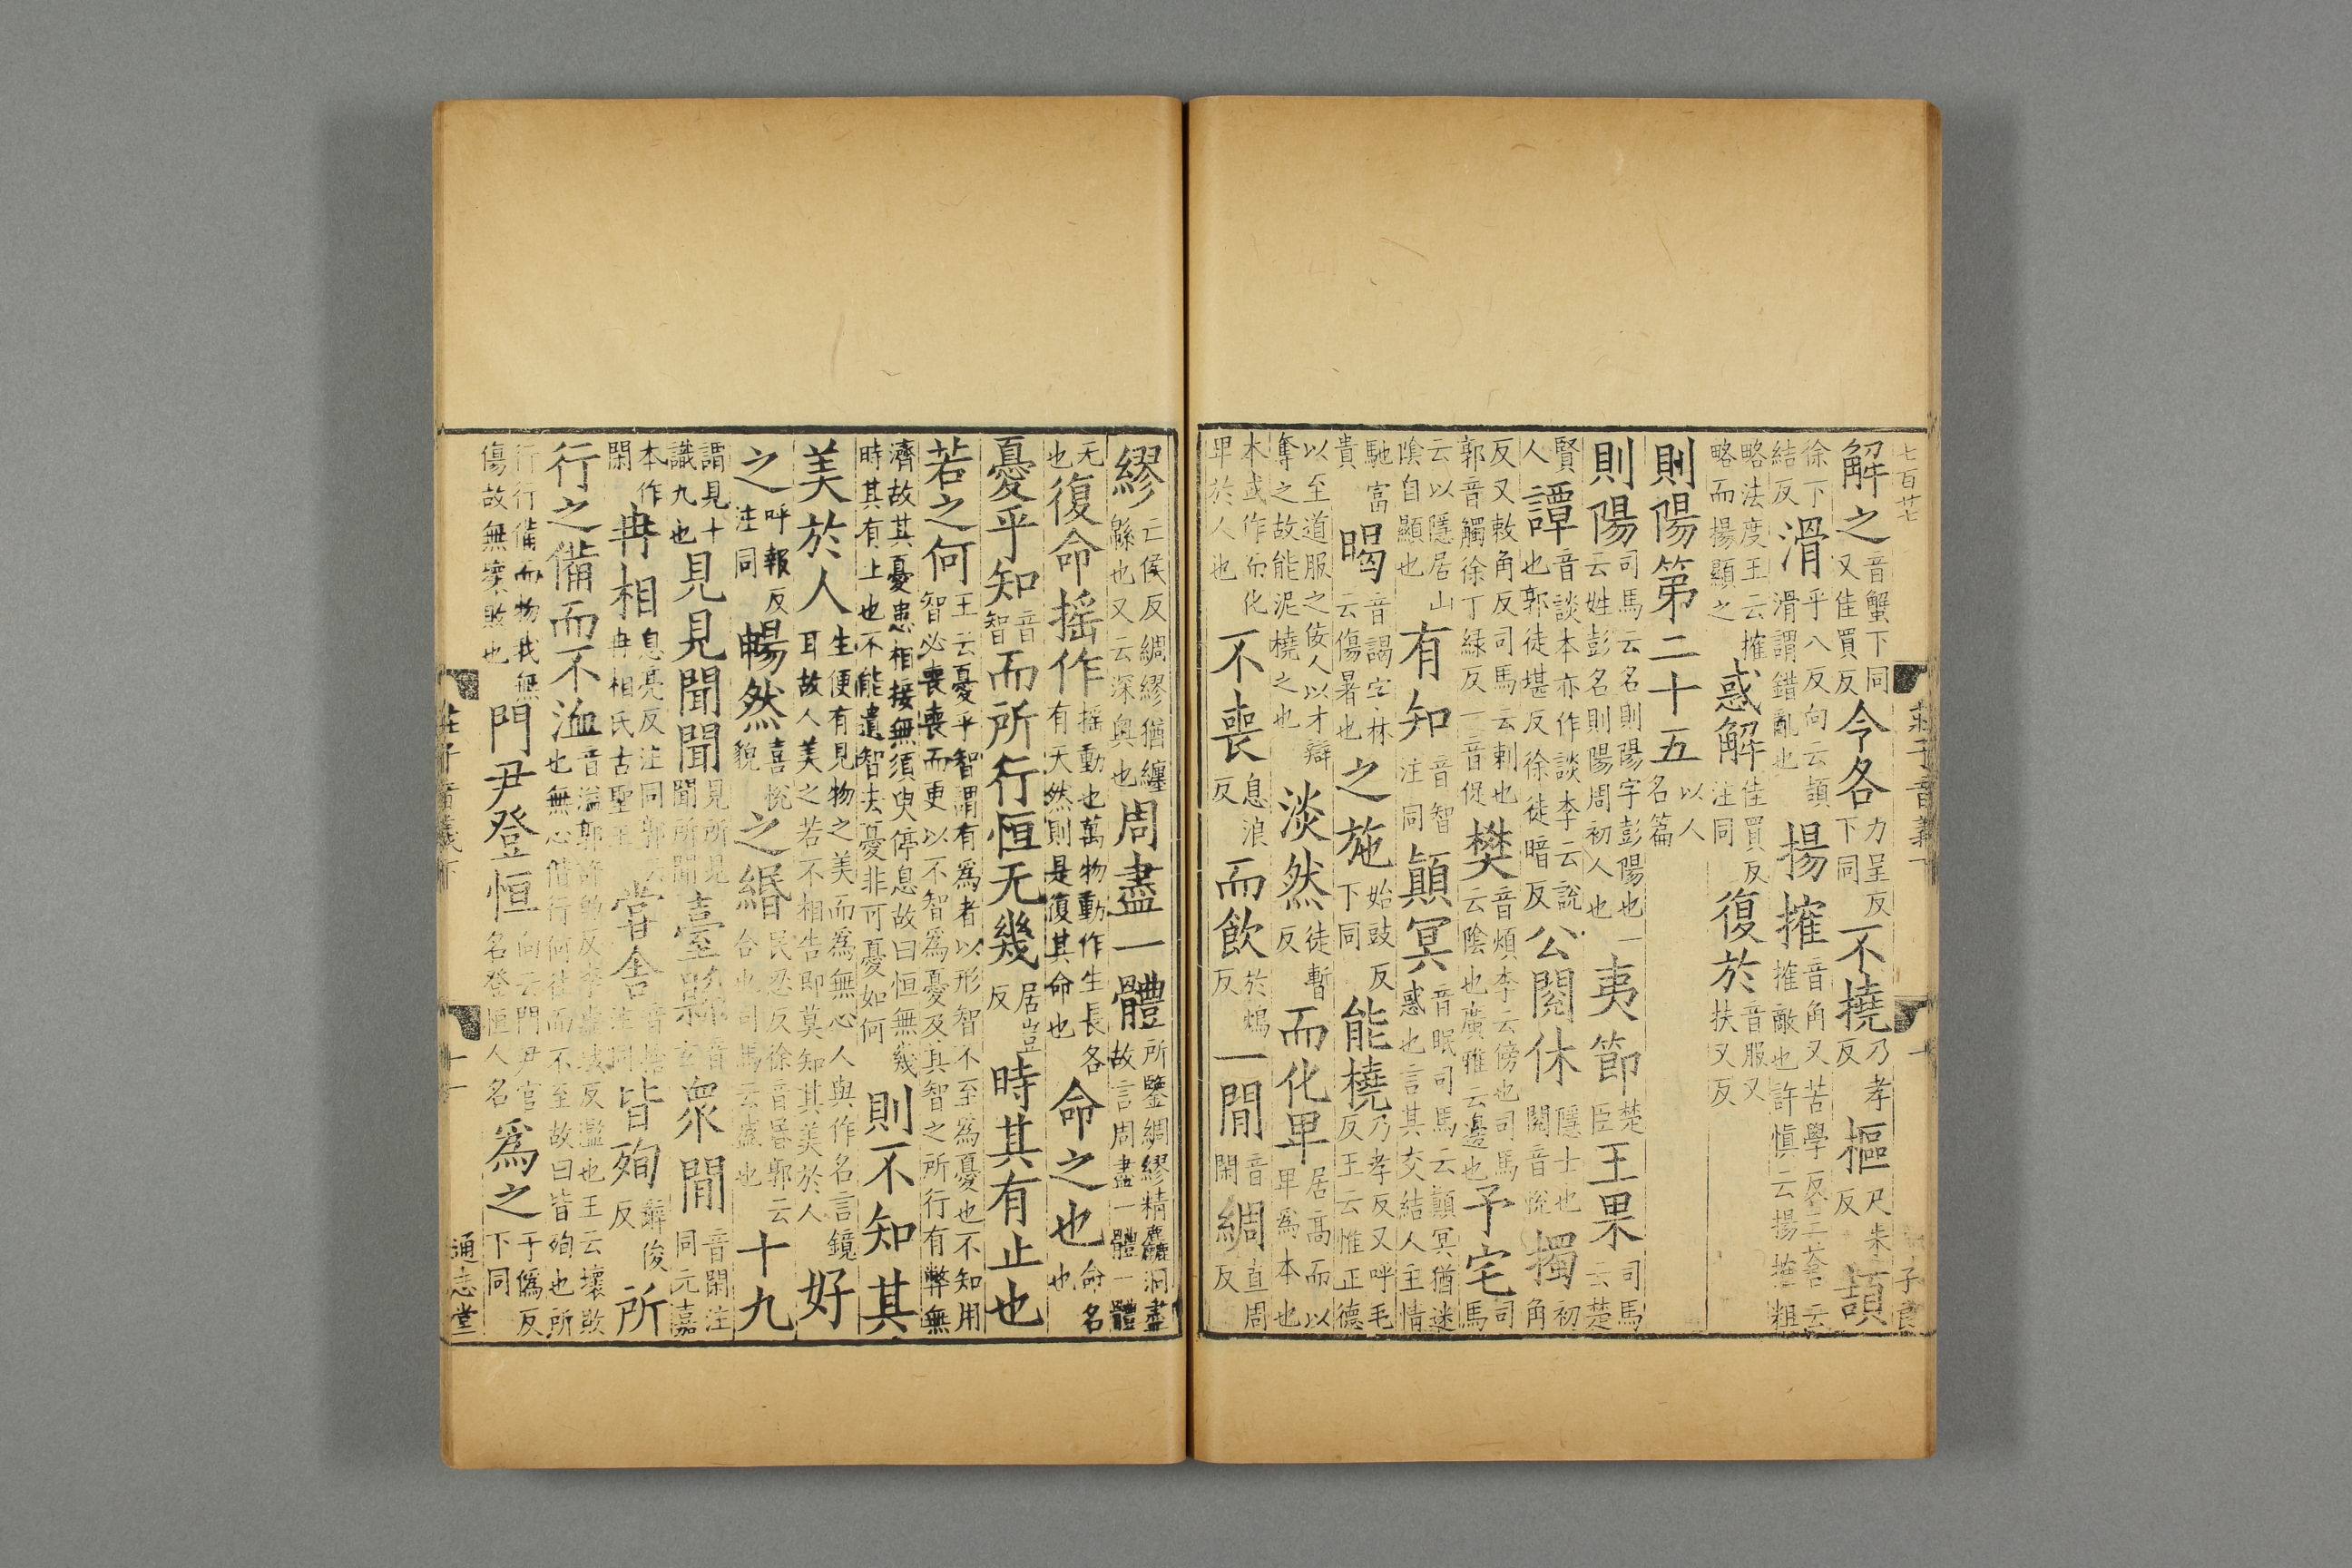 七百廿七
解之音蟹下同又佳買反今各下同不撓乃孝反樞尺朱反頡
徐下結反滑乎八反向云頡滑謂錯亂也揚搉音角又苦學反三蒼云搉敵也許慎云揚搉粗
略法度王云搉略而揚顯之惑解佳買反注同復於音服又扶又反
則陽第二十五以人名篇
則陽司馬云名則陽字彭陽也一云姓彭名則陽周初人也夷節楚臣王果司馬云楚
賢人譚音談本亦作談李云說也郭徒堪反徐徒暗反公閱休隱士也閱音悅擉初角
反又敕角反司馬云刺也郭音觸徐丁綠反一音促樊音煩李云傍也司馬云陰也廣雅云邊也予宅司馬
云以隱居山陰自顯也有知音智注同顛冥音眠司馬云顛冥猶迷惑也言其交結人主情
馳富貴暍音謁字林云傷暑也之施始豉反下同能橈乃孝反又呼毛反王云惟正德
以至道服之佞人以才辯奪之故能泥橈之也淡然徒暫反而化卑居高而以卑爲本也
本或作而化卑於人也不喪息浪反而飲於鴆反一閒音閑綢直周反
繆亡侯反綢繆猶纏緜也又云深奥也周盡一體所鑒綢繆精麤洞盡故言周盡一體一體
无也復命摇作摇動也萬物動作生長各有天然則是復其命也命之也命名也
憂乎知音智而所行恒无幾居豈反時其有止也
若之何王云憂乎智謂有爲者以形智不至爲憂也不知用智必喪喪而更以不智爲憂及其智之所行有弊無
濟故其憂患相接無須臾停息故曰恒無幾時其有止也不能遺智去憂非可憂如何則不知其
美於人生便有見物之美而爲無心人與作名言鏡耳故人美之若不相告即莫知其美於人好
之呼報反注同暢然喜悅貌之緡民忍反徐音昏郭云合也司馬云盛也十九
謂見十識九也見見聞聞見所見聞所聞臺縣音玄衆閒音閑注同元嘉
本作閑冉相息亮反注同郭云冉相氏古聖王嘗舍音捨注同皆殉辭俊反所
行之備而不洫音溢郭許的反李虛域反濫也王云壞敗也無心偕行何往而不至故曰皆殉也所
行行備而物我無傷故無壞敗也門尹登恒向云門尹官名登恒人名爲之于僞反下同
莊子音義下
十一
通志堂